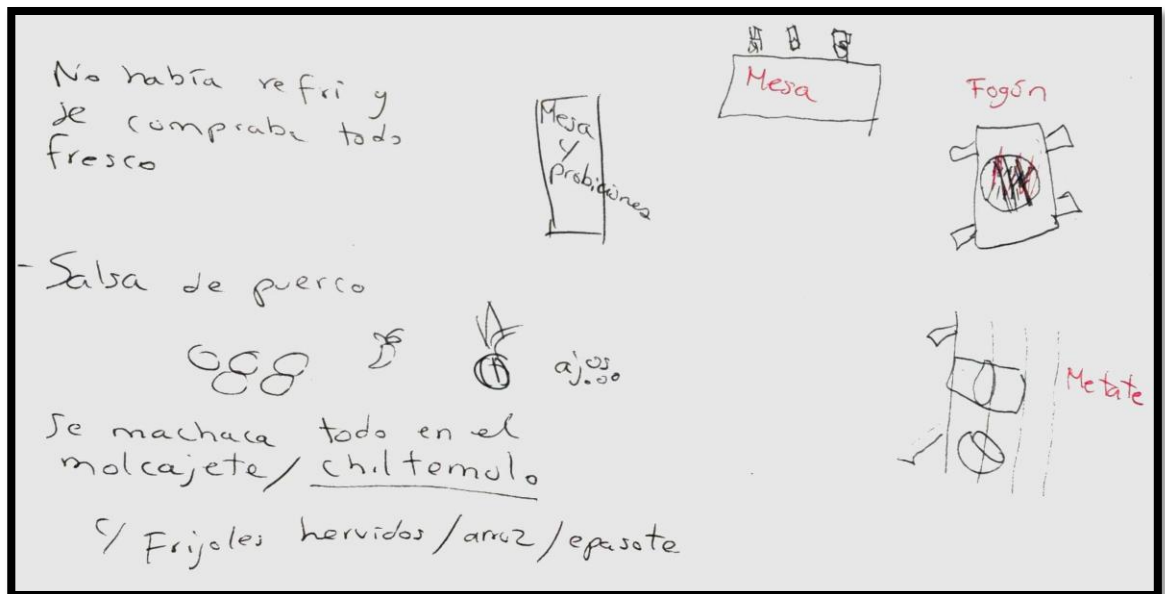 No había refri y
se compraba todo
fresco
Mesa
y
probiciones
Mesa
Fogón
- Salsa de puerco
ajos
Metate
Se machaca todo en el
molcajete/ chiltemolo
c/ Frijoles hervidos/arroz/epasote